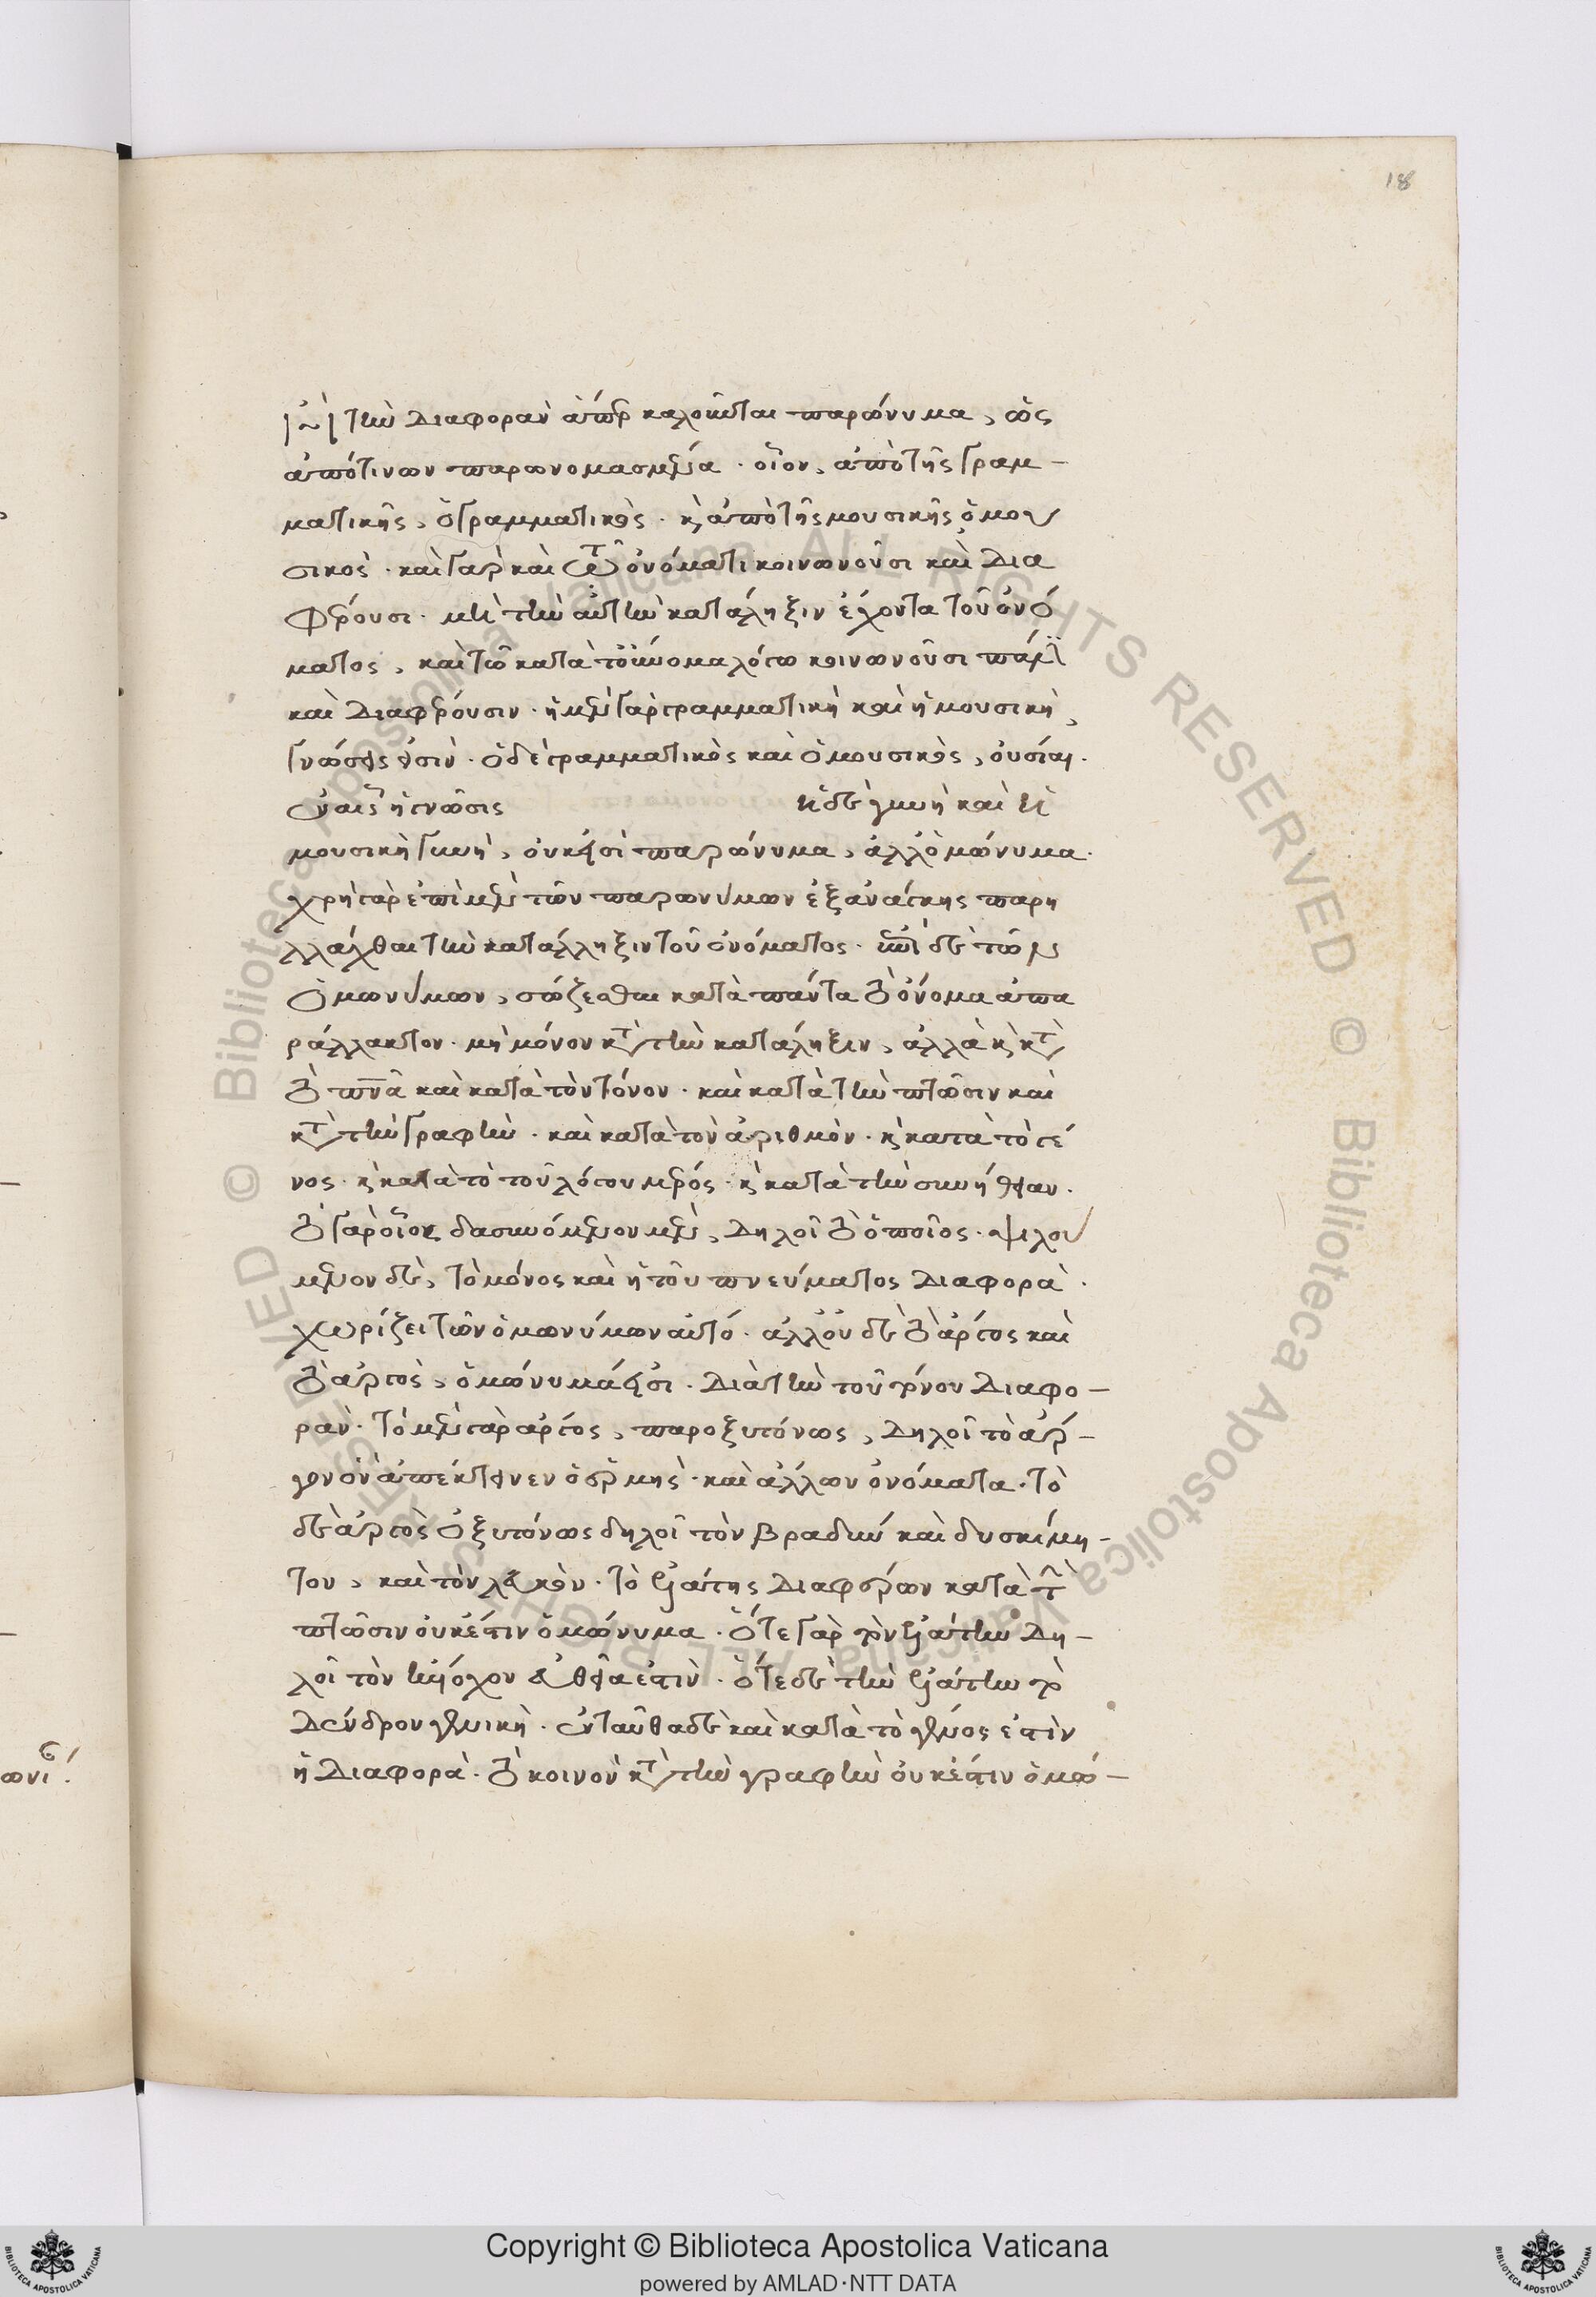 18
τὴν διαφορὰν ἅπερ καλοῦνται παρώνυμα, ὡς
ἀπό τινων παρωνομασμένα. οἷον, ἀπὸ τῆς γραμ-
ματικῆς, ὁ γραμματικὸς. κ ἀπὸ τῆς μουσικῆς ὁ μου
σικὸς. καὶ γὰρ καὶ ὀνόματι κοινωνοῦσι καὶ δια
φέρουσι. μὴ τὴν αὐτὴν κατάληξιν ἔχοντα τοῦ ὀνό
ματος, καὶ τῶ κατὰ τοὔνομα λόγω κοινωνοῦσι
καὶ διαφέρουσιν. ἡ μὲν γὰρ γραμματικὴ καὶ ἡ μουσικὴ,
γνώσεις εἰσὶν. ὁ δὲ γραμματικὸς καὶ ὁ μουσικὸς, οὐσίαι.
ἐν αἷς ἡ γνῶσις ἡ δὲ γυνὴ καὶ ἡ
μουσικὴ γυνὴ, οὐκ εἰσὶ παρώνυμα, ἀλλ' ὁμώνυμα.
χρὴ γὰρ ἐπὶ μὲν τῶν παρωνύμων ἐξ ἀνάγκης παρη
λλάχθαι τὴν κατάλληξιν τοῦ ὀνόματος. ἐπὶ δὲ τῶν
ὁμωνύμων, σώζεσθαι κατὰ πάντα τὸ ὄνομα ἀπα
ράλλακτον. μὴ μόνον κτ τὴν κατάληξιν, ἀλλὰ κ κτ
τὸ πνα καὶ κατὰ τὸν τόνον. καὶ κατὰ τὴν πτῶσιν καὶ
κτ τὴν γραφὴν. καὶ κατὰ τὸν ἀριθμὸν. κ κατὰ τὸ γέ
νος. κ κατὰ τὸ τοῦ λόγου μέρος. κ κατὰ τὴν συνήθειαν.
τὸ γὰρ οἷος δασυνόμενον μὲν, δηλοῖ τὸ ὁποῖος. ψιλού
μενον δὲ, τὸ μόνος καὶ ἡ τοῦ πνεύματος διαφορὰ.
χωρίζει τῶν ὁμωνύμων αὐτό. ἀλλ' οὐδὲ τὸ ἄργος καὶ
τὸ ἀργὸς, ὁμώνυμά εἰσι. διὰ τὴν τοῦ τόνου διαφο-
ράν. τὸ μὲν γὰρ ἄργος, παροξυτόνως, δηλοῖ τὸ ἄρ-
γον ὃν ἀπέκτεινεν ὁ ἑρμῆς. καὶ ἄλλων ὀνόματα. τὸ
δὲ ἀργὸς ὀξυτόνως δηλοῖ τὸν βραδὺν καὶ δυσκίνη-
τον, καὶ τὸν λευκὸν. τὸ ἐλάτης διαφέρων κατὰ τ
πτῶσιν οὐκ ἔστιν ὁμώνυμα. ὅτε γὰρ τὸν ἐλάτην δη-
λοῖ τὸν ἡνίοχον εὐθεῖα ἐστὶν. ὅτε δὲ τὴν ἐλάτην τὸ
δένδρον γενικὴ. ἐνταῦθα δὲ καὶ κατὰ τὸ γένος ἐστὶν
ἡ διαφορὰ. τὸ κοινὸν κτ τὴν γραφὴν οὐκ ἔστιν ὁμώ-
Copyright © Biblioteca Apostolica Vaticana
powered by AMLAD·NTT DATA